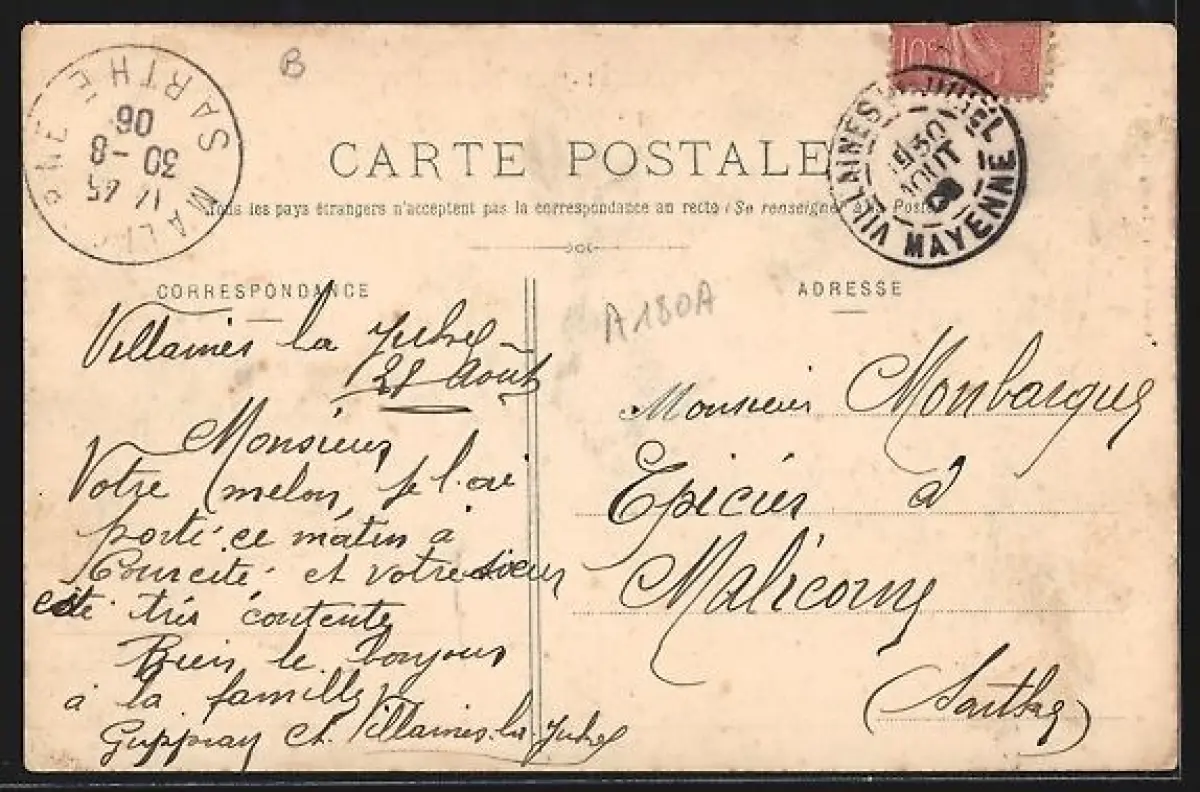 B
10c
SARTHE MALIC RNE
17 45
30 -8
06
CARTE POSTALE
VILLAINES JUHEL MAYENNE
30
AOUT
Tous les pays étrangers n'acceptent pas la correspondance au recto (Se renseigner à la Poste)
CORRESPONDANCE
Villaines la Juhel
28 Août
Monsieur
Votre melon je l.ai
porté ce matin à
Courcité et votre soeur
été très contente
Bien le bonjour
à la famille
et Villaines-la-Juhel
A180A
ADRESSE
Monsieur Monbarque
Epicier à
Malicorne
(Sarthe)